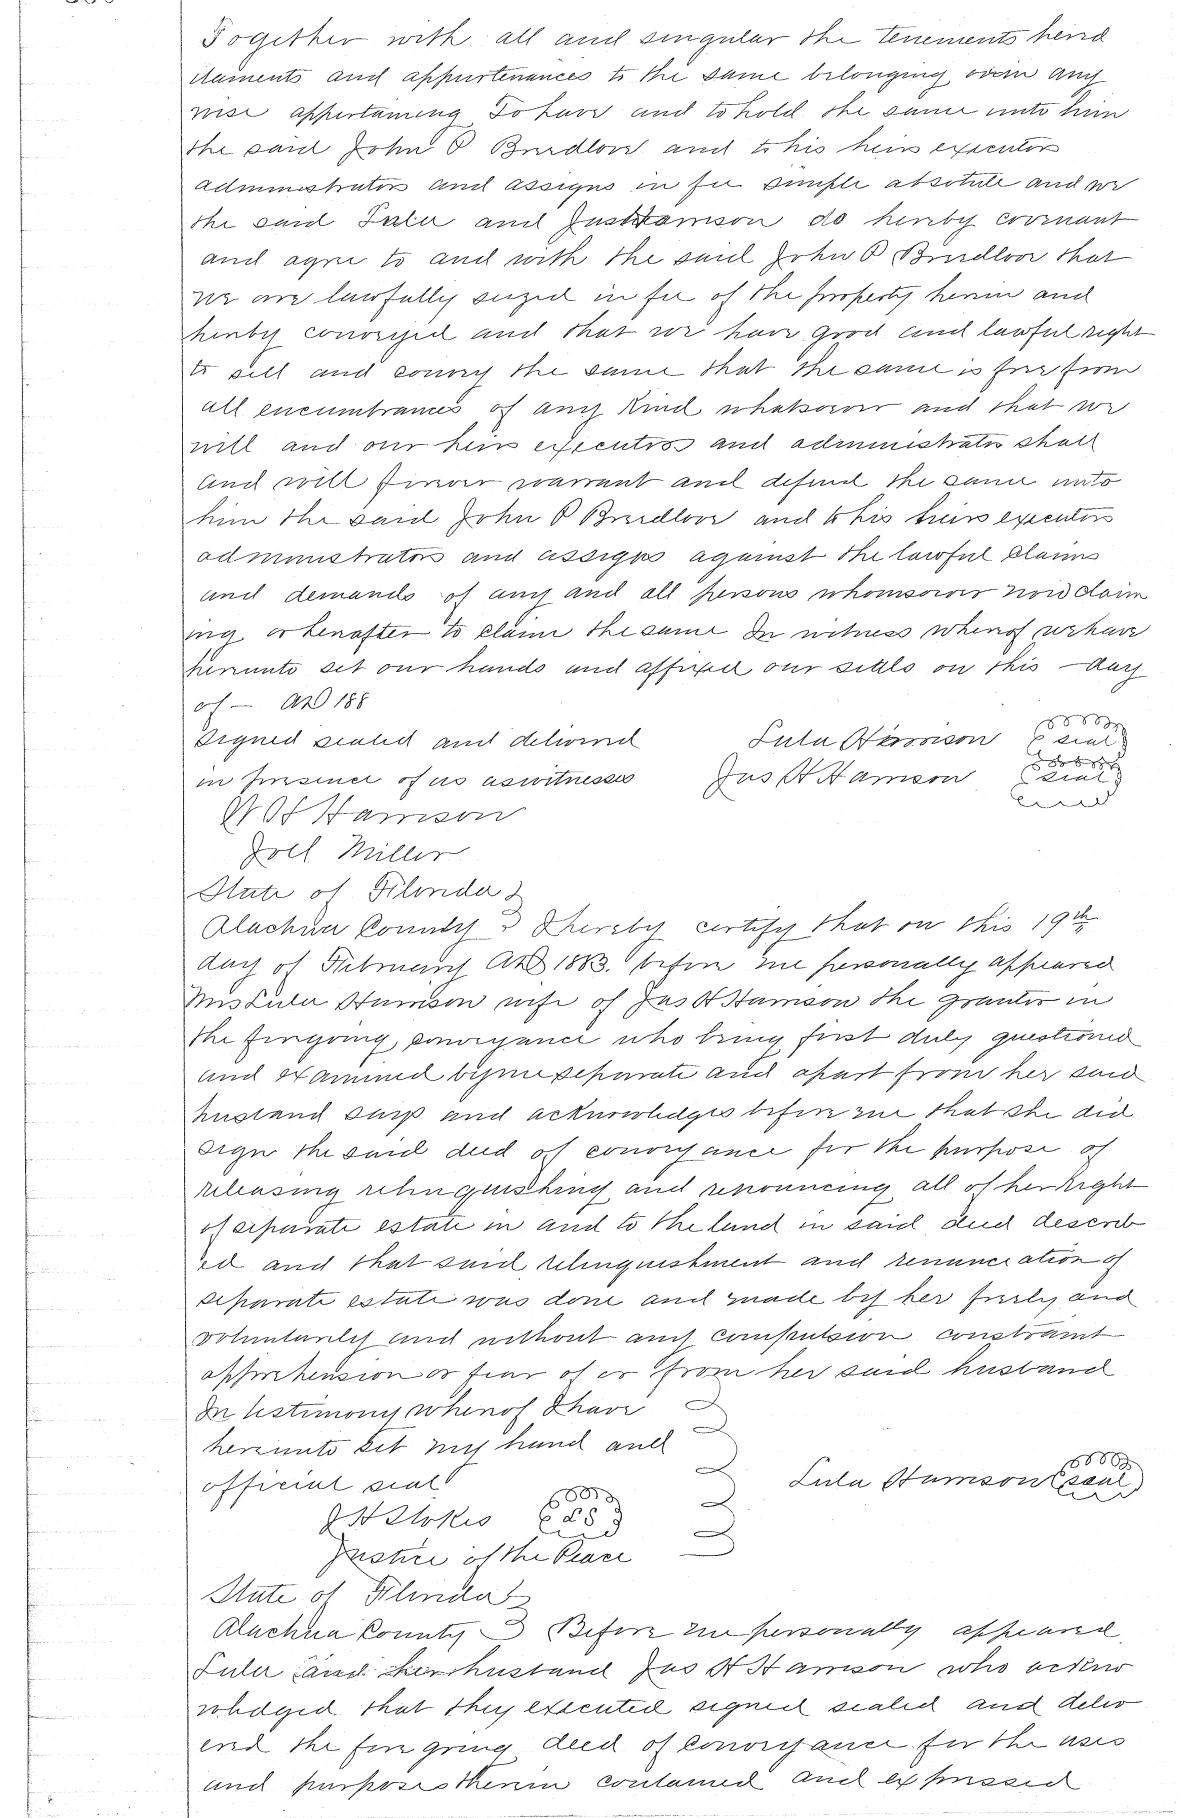 Together with all and singular the tenements hered
itaments and appurtenances to the same belonging or in any
wise appertaining To have and to hold the same unto him
the said John P Breedlove and to his heirs executors
administrators and assigns in fee simple absolute and we
the said Lula and Jas H Harrison do hereby covenant
and agree to and with the said John P Breedlove that
we are lawfully seized in fee of the property herein and
hereby conveyed and that we have good and lawful right
to sell and convey the same that the same is free from
all encumbrances of any kind whatsoever and that we
will and our heirs executors and administrators shall
and will forever warrant and defend the same unto
him the said John P Breedlove and to his heirs executors
administrators and assigns against the lawful claims
and demands of any and all persons whomsoever now claim
ing or hereafter to claim the same In witness whereof we have
hereunto set our hands and affixed our seals on this — day
of — AD 188
Signed sealed and delivered Lula Harrison seal
in presence of us as witnesses Jas H Harrison seal
W H Harrison
Joel Miller
State of Florida
Alachua County I hereby certify that on this 19th
day of February AD 1883. before me personally appeared
Mrs Lula Harrison wife of Jas H Harrison the grantor in
the foregoing conveyance who being first duly questioned
and examined by me separate and apart from her said
husband says and acknowledges before me that she did
sign the said deed of conveyance for the purpose of
releasing relinquishing and renouncing all of her right
of separate estate in and to the land in said deed describ
ed and that said relinquishment and renunciation of
separate estate was done and made by her freely and
voluntarily and without any compulsion constraint
apprehension or fear of or from her said husband
In testimony whereof I have
hereunto set my hand and
official seal Lula Harrison seal
J H Stokes LS
Justice of the Peace
State of Florida
Alachua County Before me personally appeared
Lula and her husband Jas H Harrison who ackno
wledged that they executed signed sealed and deliv
ered the foregoing deed of conveyance for the uses
and purposes therein contained and expressed